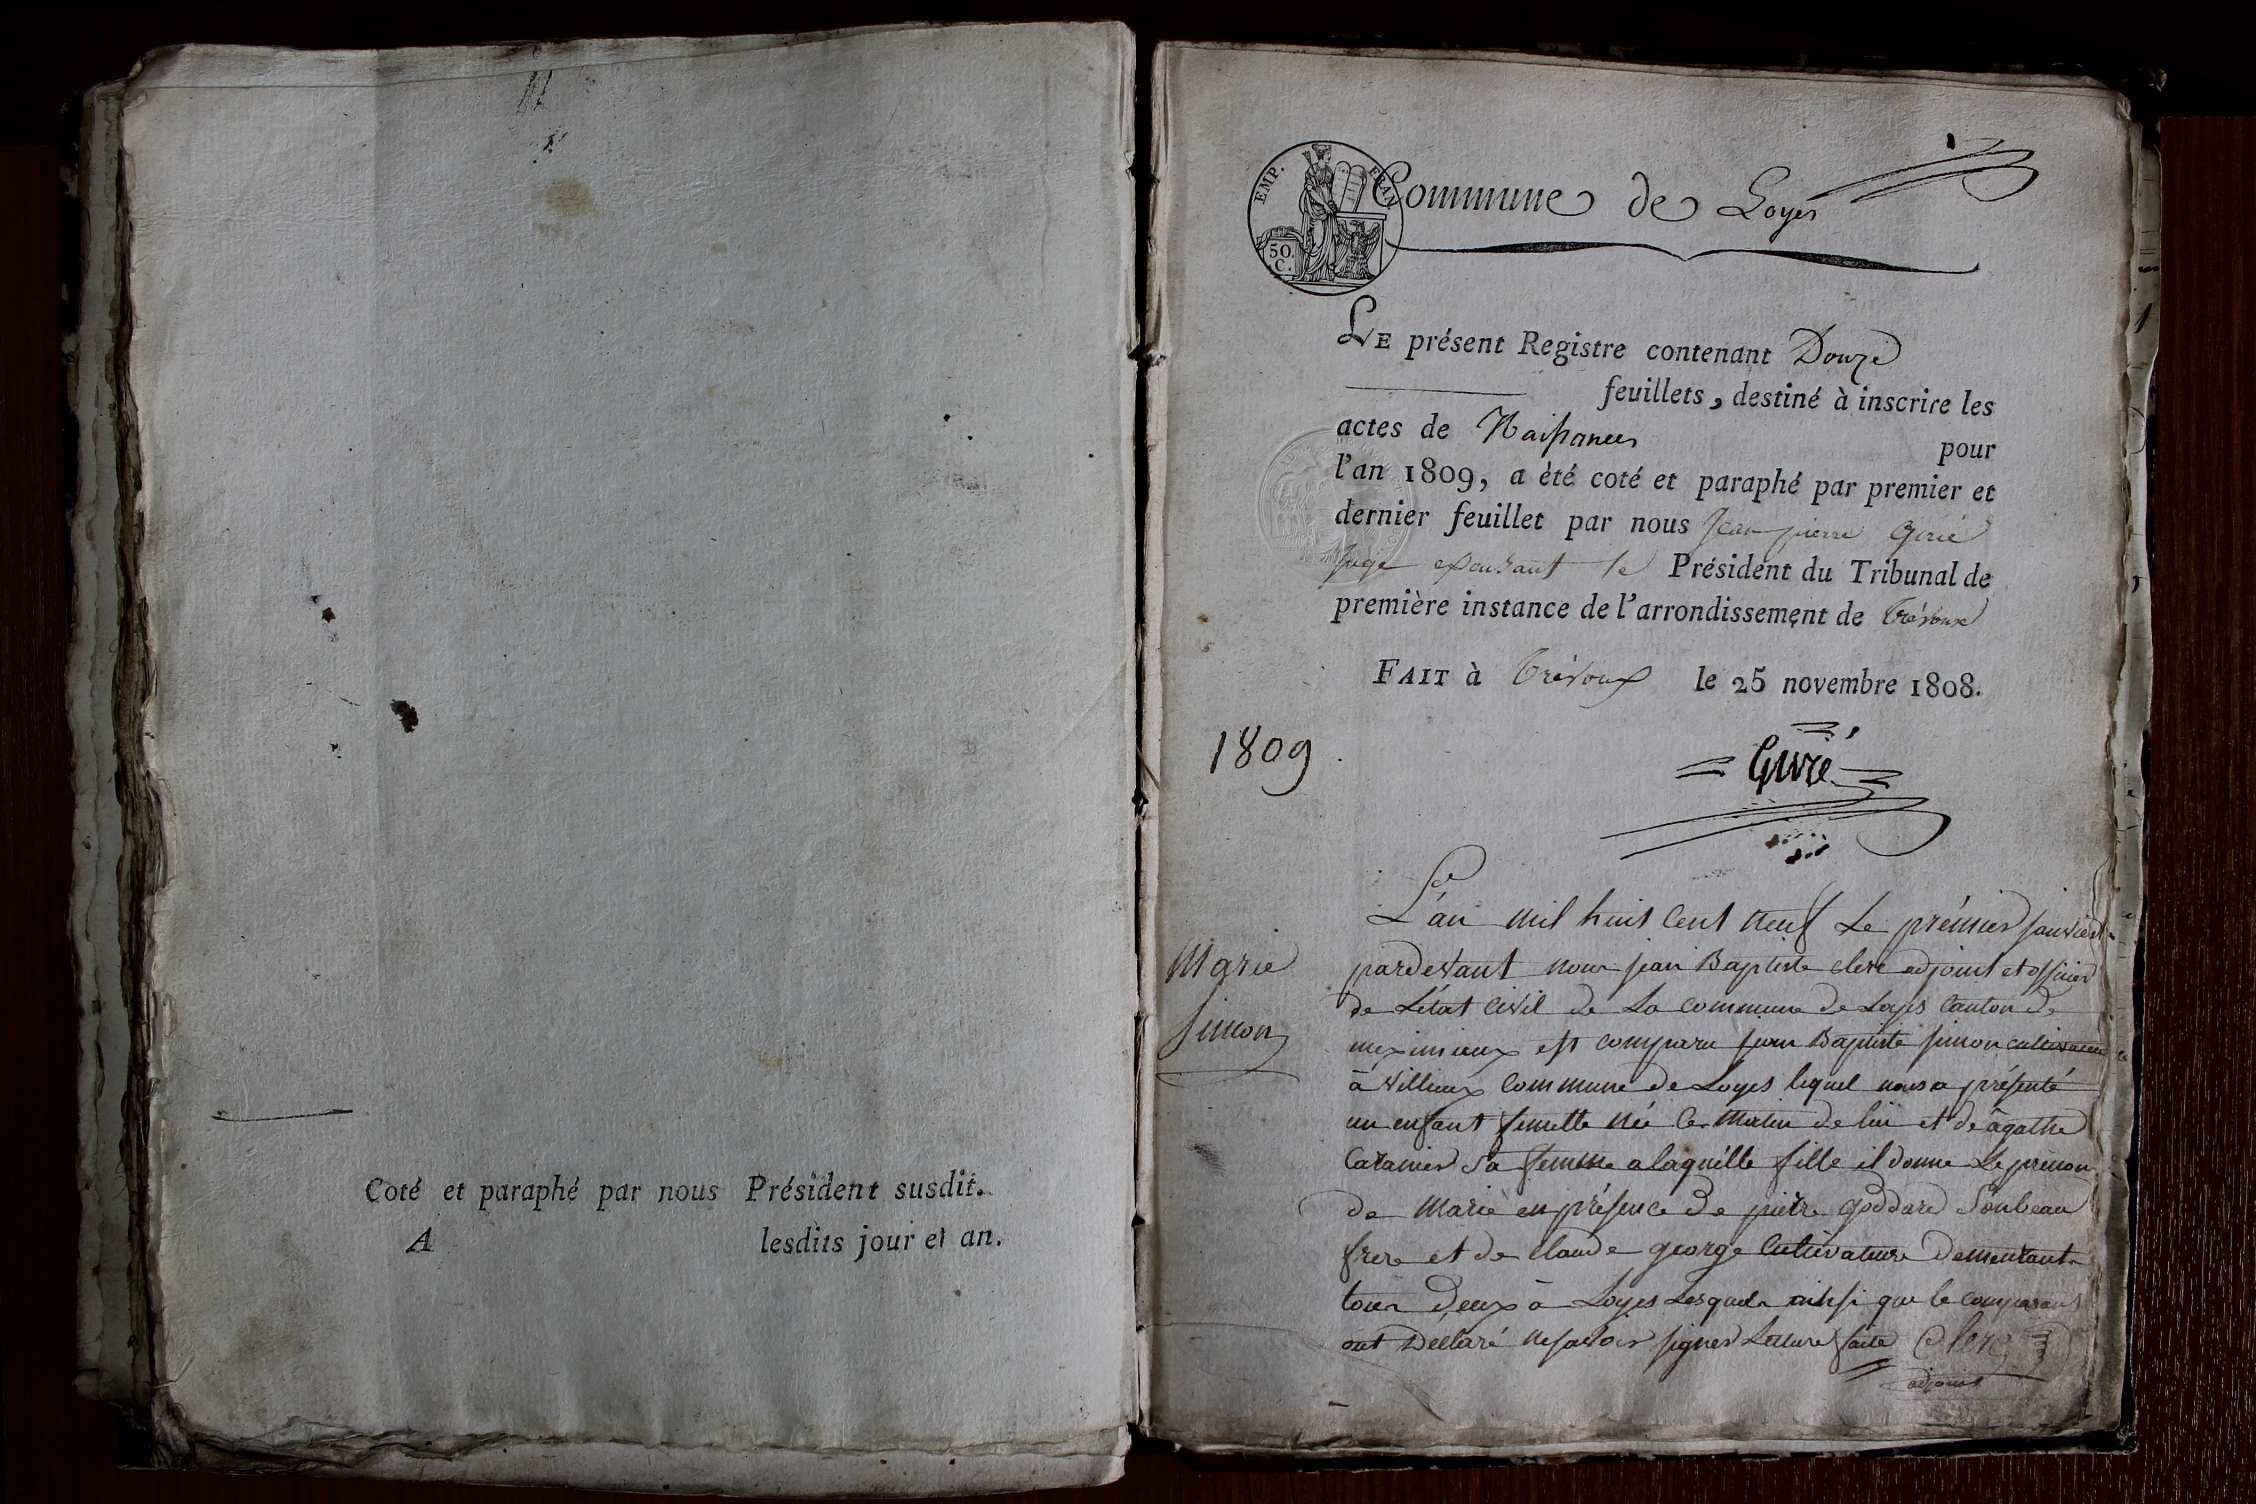 Coté et paraphé par nous Président susdit.
A lesdits jour et an.
EMP. FRAN
50.
C.
Commune de Loyes
LE présent Registre contenant Douze
feuillets, destiné à inscrire les
actes de Naissances pour
l'an 1809, a été coté et paraphé par premier et
dernier feuillet par nous Jean pierre
juge le Président du Tribunal de
première instance de l'arrondissement de Trévoux
FAIT à Trévoux le 25 novembre 1808.
1809
Marie
Simon
L'an mil huit Cent neuf Le prémier janvier
pardevant nous jean Baptiste clerc adjoint et officier
de L'état Civil de La commune de Loyes Canton de
meximieux est comparu jean Baptiste simon cultivateur
à Villieux Commune de Loyes lequel nous a présenté
un enfant femelle née Ce Matin de lui et de âgathe
sa femme a laquélle fille il donne Le prénom
de Marie en présence De pierre goddard Son beau
frere et de claude george Cultivateurs Demeurant
tous Deux à Loyes Lesquels ainsi que le comparant
ont Déclaré ne savoir signer Lecture faite Clerc
adjoint